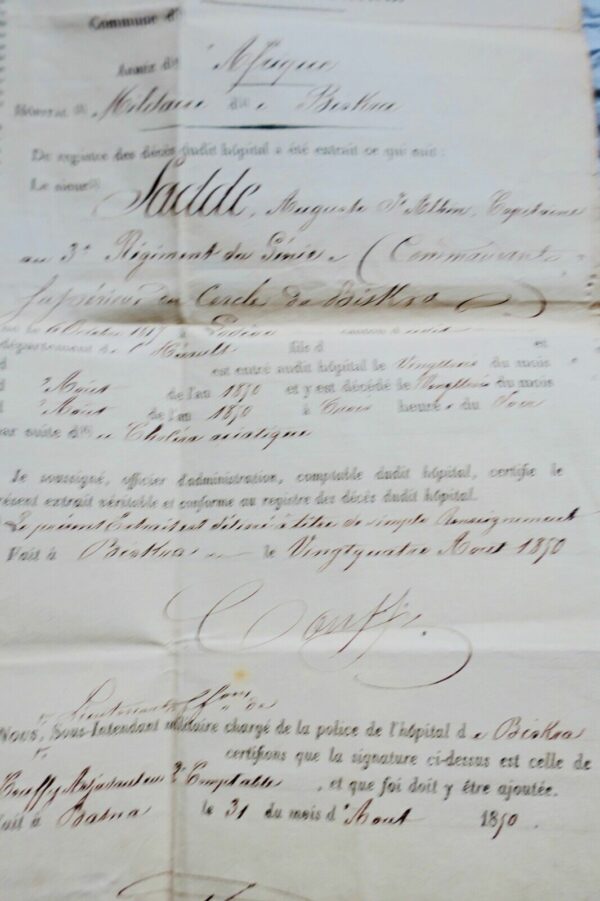 Commune d'
Armée d' Afrique
Hôpital Militaire d e Biskra
Du registre des décès dudit hôpital a été extrait ce qui suit :
Le sieur Sadde, Auguste St Albin, Capitaine
au 3e Régiment du Génie (Commandant
Supérieur du Cercle de Biskra)
né le 6 Octobre 1817 à Lodève
département de l' Hérault fils d et
d est entré audit hôpital le Vingttrois du mois
d' Août de l'an 1850 et y est décédé le Vingttrois du mois
d' Août de l'an 1850 à trois heures du Soir
par suite d e Choléra asiatique
Je soussigné, officier d'administration, comptable dudit hôpital, certifie le
présent extrait véritable et conforme au registre des décès dudit hôpital.
Le présent Extrait est délivré à titre de simple Renseignement
Fait à Biskra le Vingtquatre Août 1850
Couffy
Nous, Sous-Intendant militaire chargé de la police de l'hôpital d e Biskra
certifions que la signature ci-dessus est celle de
Couffy Adjudant en 2d Comptable , et que foi doit y être ajoutée.
Fait à Batna le 31 du mois d' Août 1850.